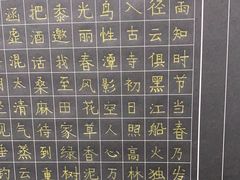 雨知时节当春乃发
径云俱黑江船火独
入古寺初日照高林
鸟性潭影空人心万
光丽春风花草香泥
黍邀我至田家绿树
把酒话桑麻待到重
涵虚混太清气蒸云